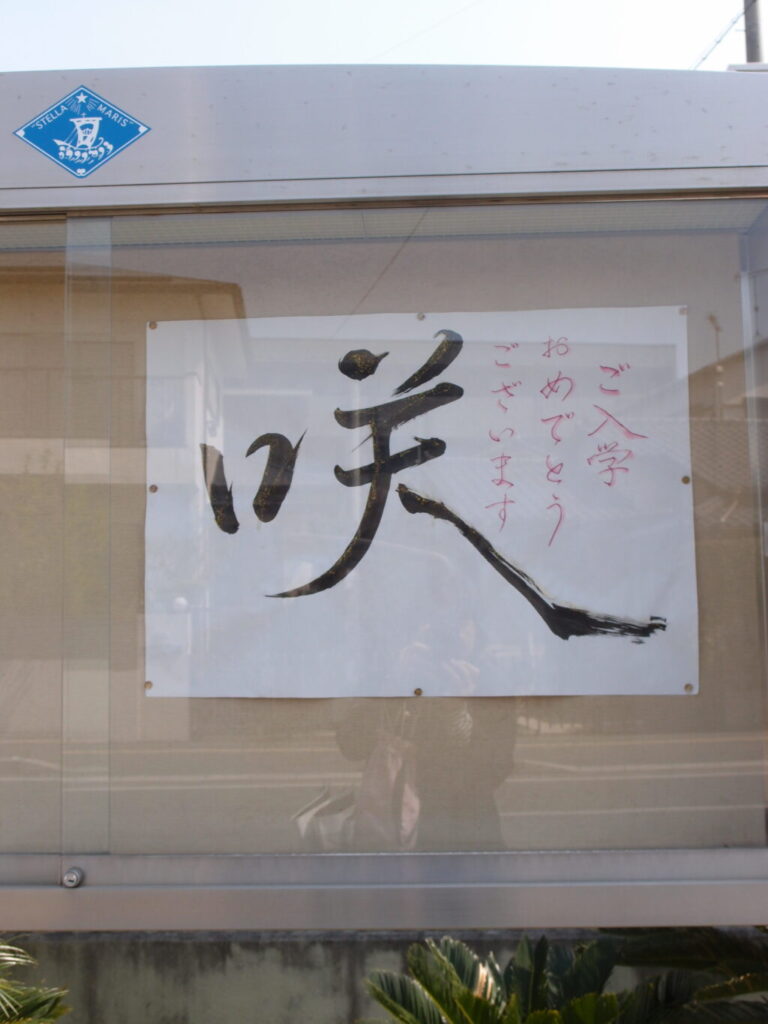 STELLA MARIS
ご入学
おめでとう
ございます
咲